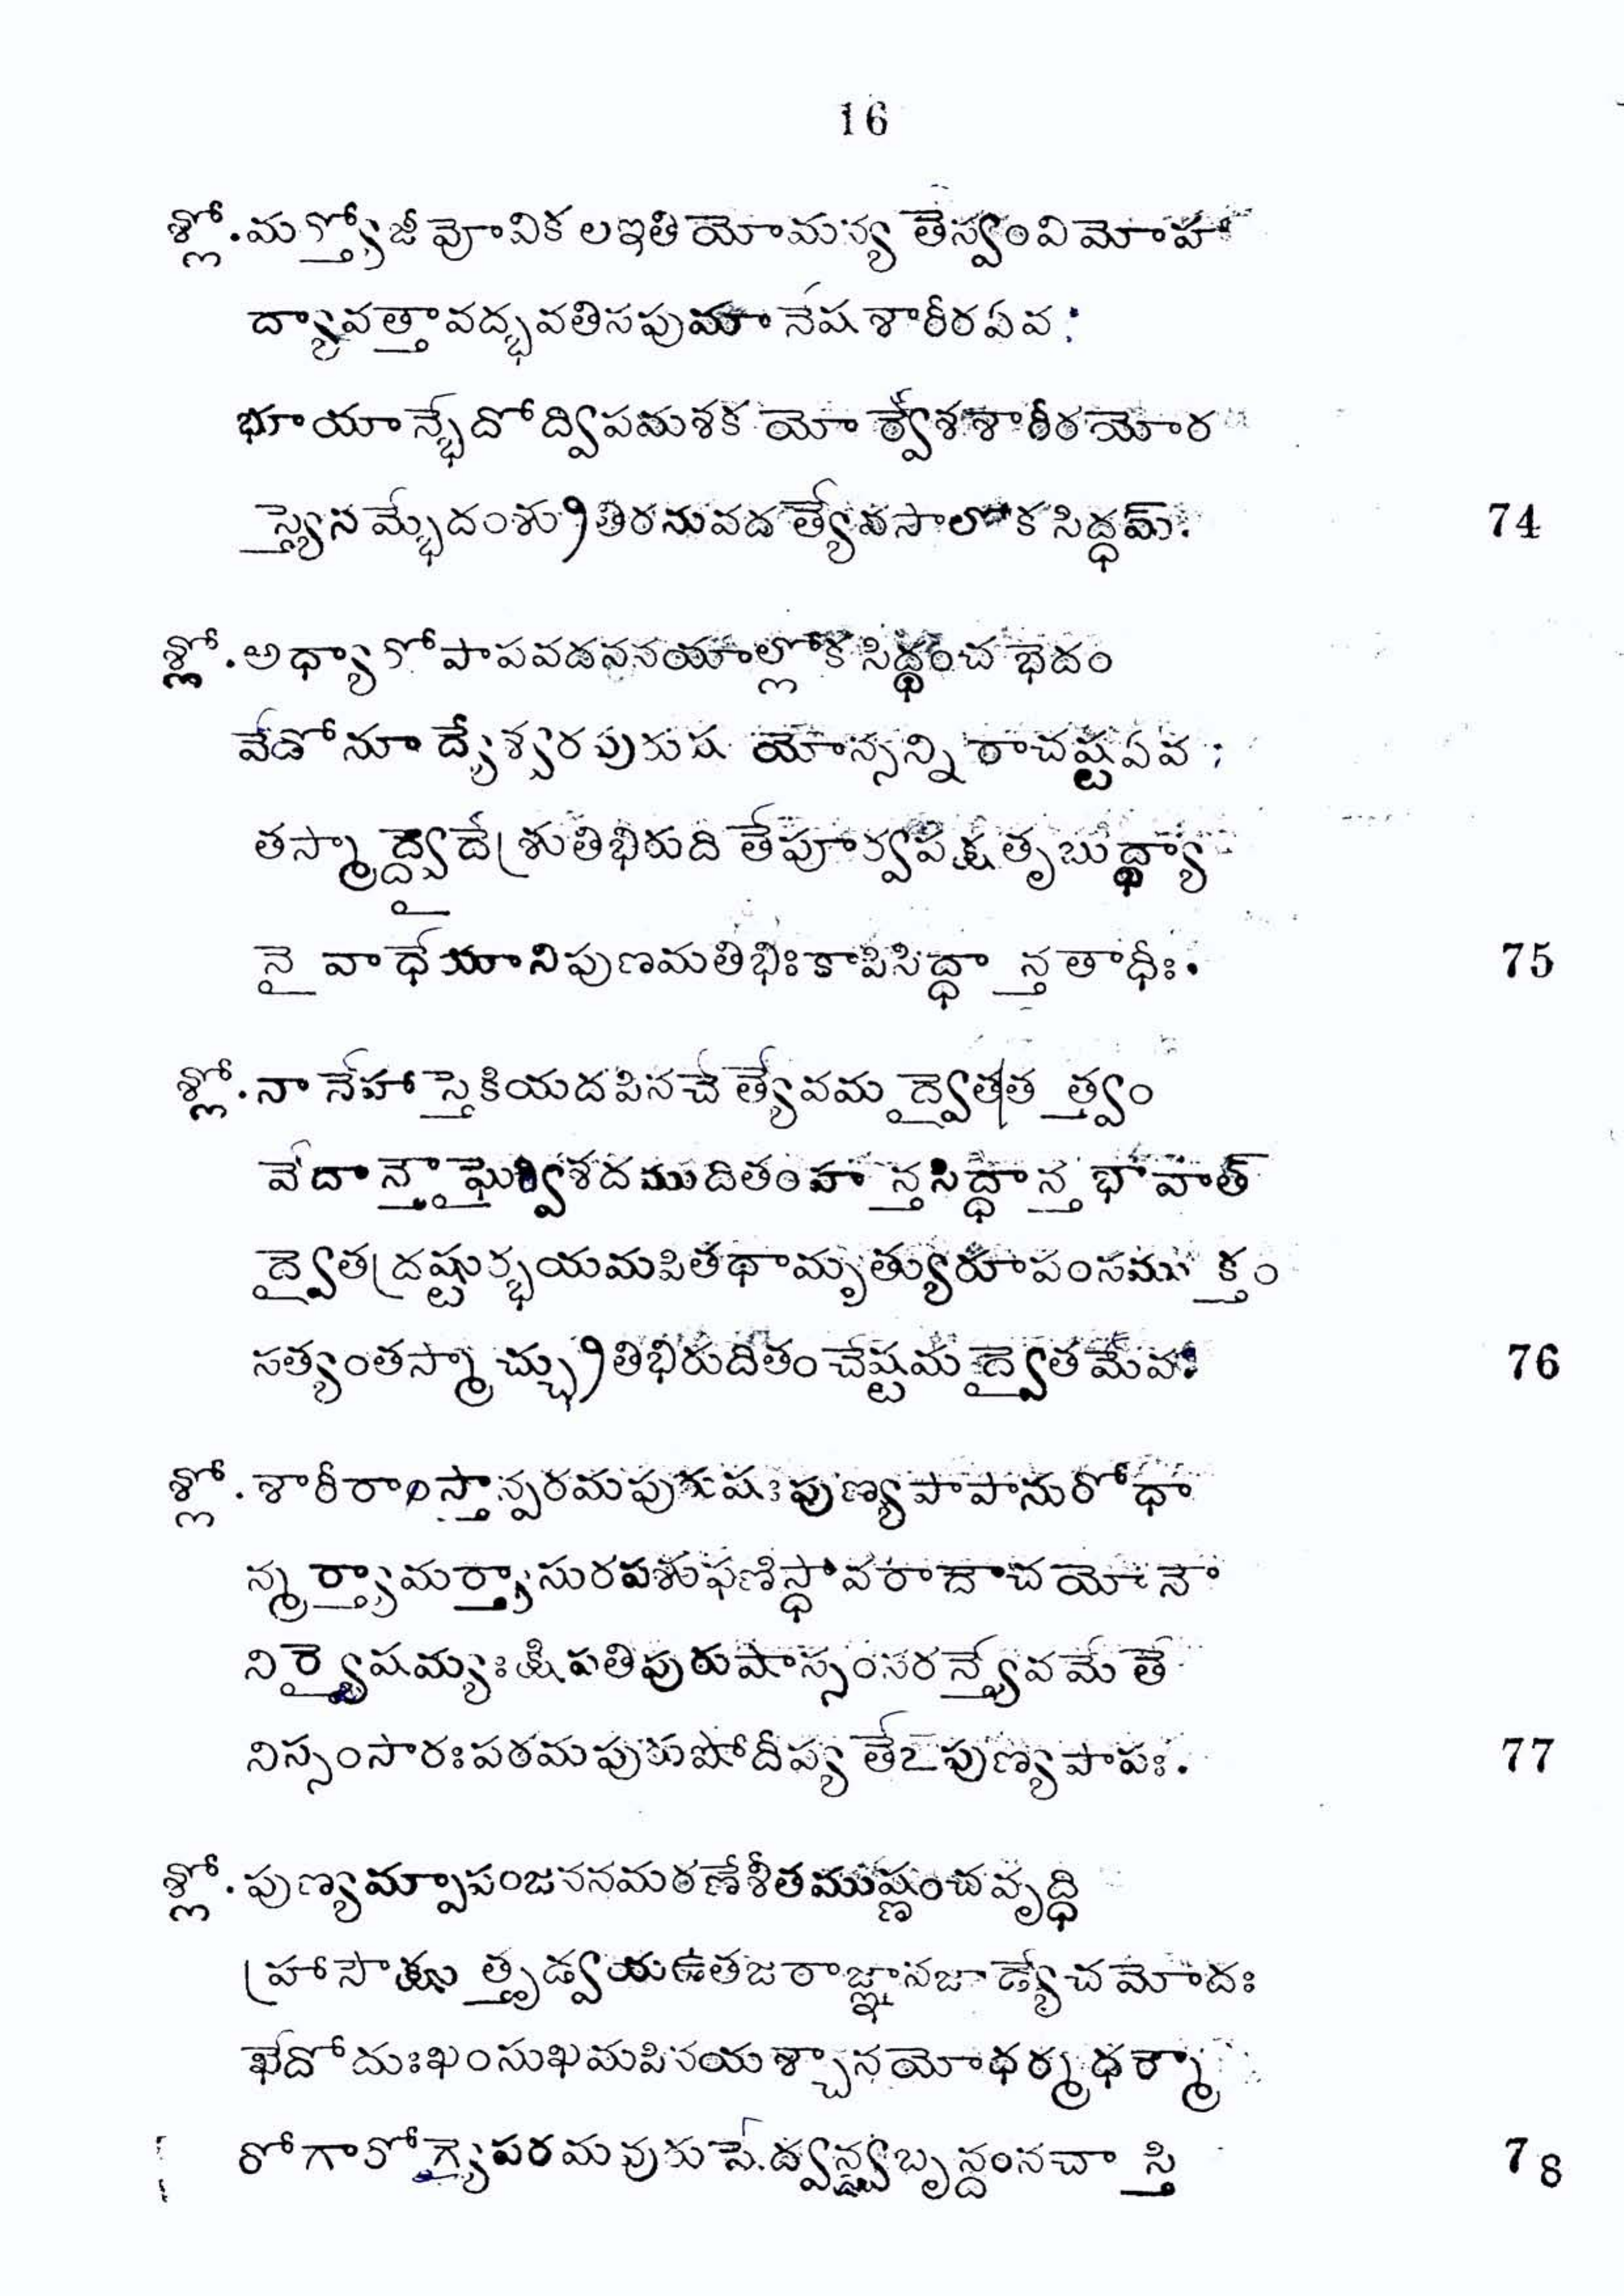 16
శ్లో. మర్త్యోజీవోవికలఇతియోమన్యతేస్వంవిమోహా
ద్యావత్తావద్భవతిసపుమానేషశారీరఏవ:
భూయాన్భేదోద్విపమశకయోర్వేశశారీరయోర
స్త్యేనమ్భేదంశ్రుతిరనువదత్యేవసాలోకసిద్ధమ్.
74
శ్లో. అధ్యారోపాపవదననయాల్లోకసిద్ధంచభేదం
వేదోనూద్యేశ్వరపురుషయోస్సన్నిరాచష్టఏవ;
తస్మాద్ద్వైదేశ్రుతిభిరుదితేపూర్వపక్షతృబుద్ధ్యా
నైవాధేయానిపుణమతిభిఃకాపిసిద్ధాన్తతాధీః.
75
శ్లో. నానేహాస్తెకియదపినచేత్యేవమద్వైతతత్త్వం
వేదాన్తౌఘైర్విశదముదితంహన్తసిద్ధాన్తభావాత్
ద్వైతద్రష్టుర్భయమపితథామృత్యురూపంసముక్తం
సత్యంతస్మాచ్ఛ్రుతిభిరుదితంచేష్టమద్వైతమేవః
76
శ్లో. శారీరాంస్తాన్పరమపురుషఃపుణ్యపాపానురోధా
న్మర్త్యామర్త్యాసురపశుఫణిస్థావరాదౌచయోనౌ
నిర్వైషమ్యఃక్షిపతిపురుషాస్సంసరన్త్యేవమేతే
నిస్సంసారఃపరమపురుషోదీప్యతేఽపుణ్యపాపః.
77
శ్లో. పుణ్యమ్పాపంజననమరణేశీతముష్ణంచవృద్ధి
హ్రాసౌక్షుత్తృడ్వయఉతజరాజ్ఞానజాడ్యేచమోదః
ఖేదోదుఃఖంసుఖమపినయశ్చానయోధర్మధర్మా
రోగారోగ్యైపరమపురుషే.ద్వన్ద్వబృన్దంనచాస్తి
78